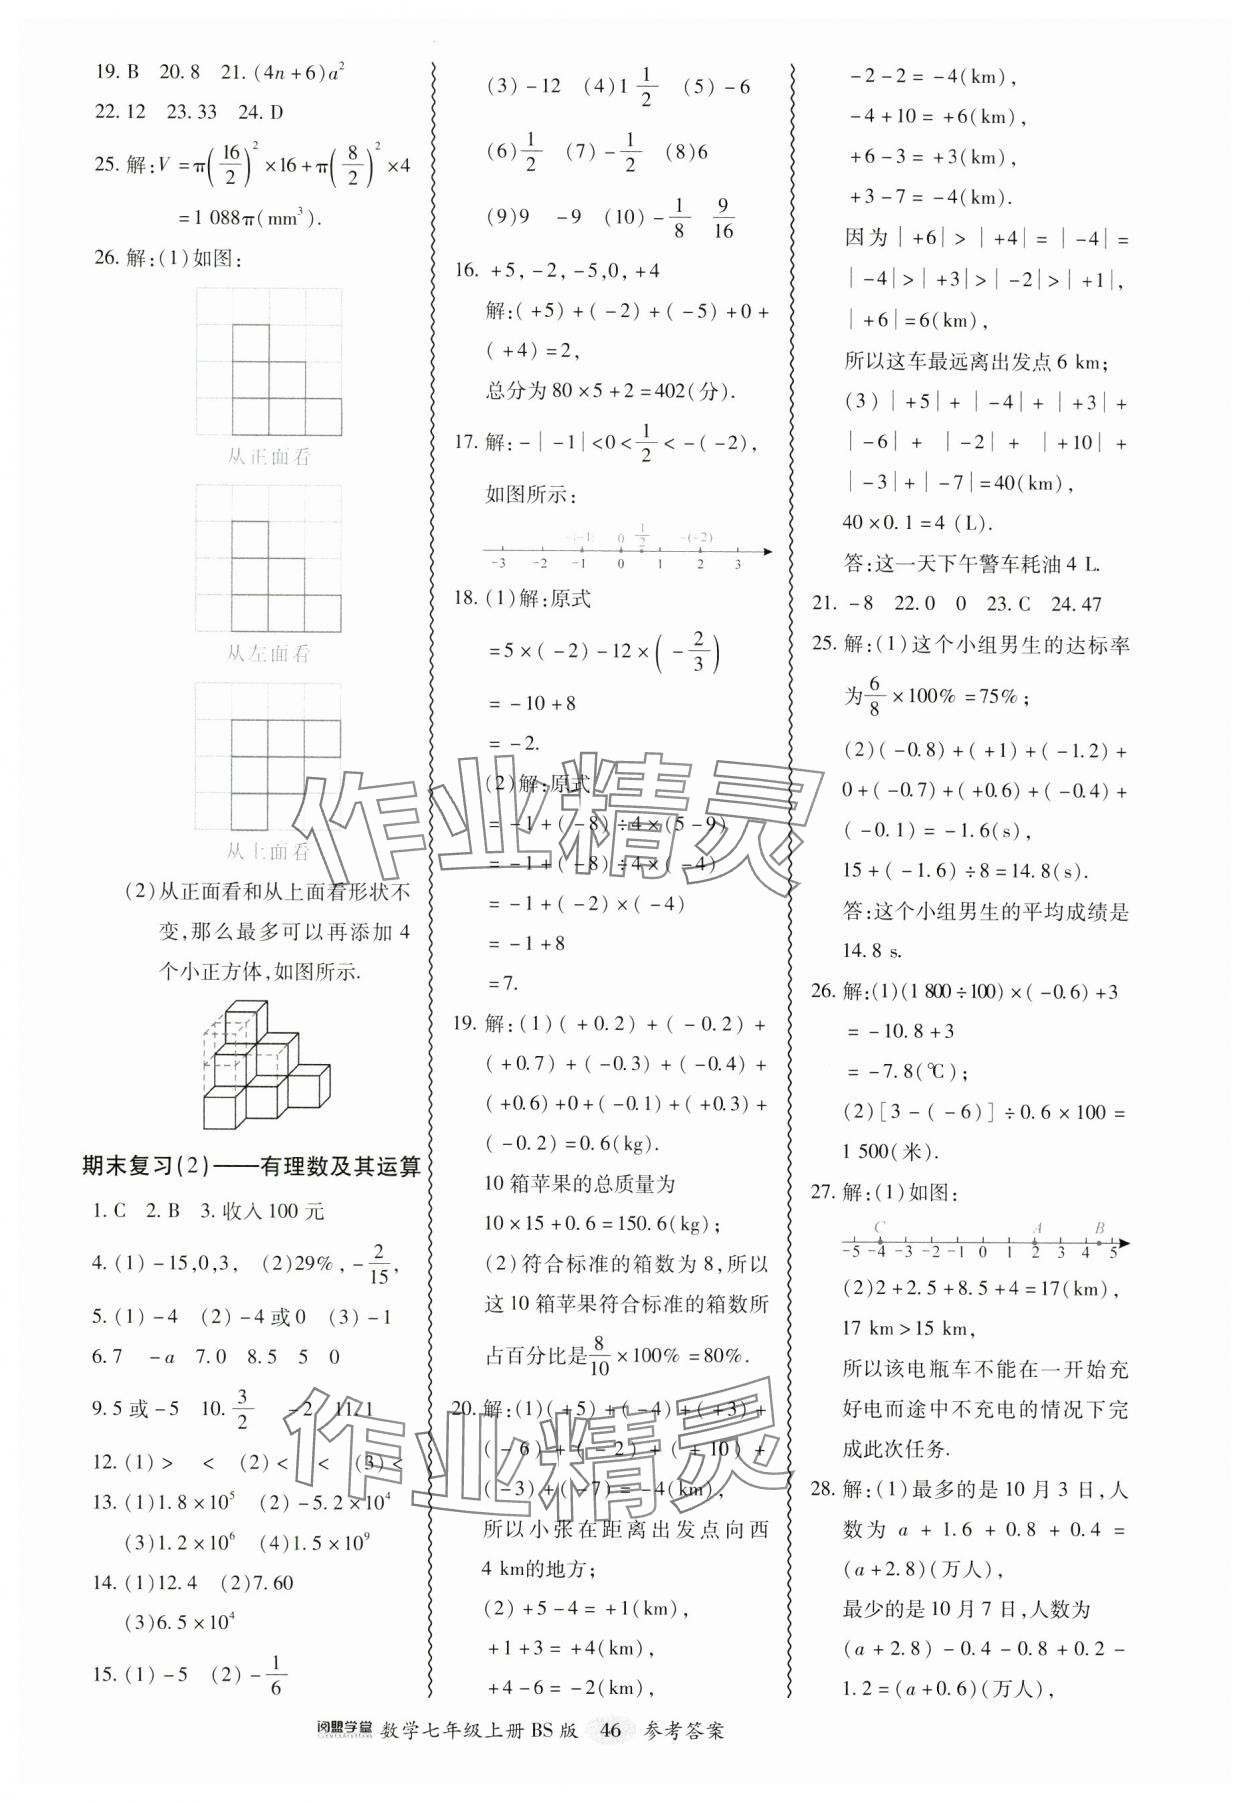 19. B　20. 8　21. (4n+6)a²
22. 12　23. 33　24. D
25. 解:V=π(16/2)²×16+π(8/2)²×4
=1 088π(mm³).
26. 解:(1)如图:
从正面看
从左面看
从上面看
(2)从正面看和从上面看形状不
变,那么最多可以再添加 4
个小正方体,如图所示.
期末复习(2)——有理数及其运算
1. C　2. B　3. 收入100 元
4. (1)-15,0,3,　(2)29%,-2/15,
5. (1)-4　(2)-4或0　(3)-1
6. 7　-a　7. 0　8. 5　5　0
9. 5或-5　10. 3/2　-2　11. 1
12. (1)>　<　(2)<　<　(3)<
13. (1)1.8×10⁵　(2)-5.2×10⁴
(3)1.2×10⁶　(4)1.5×10⁹
14. (1)12.4　(2)7.60
(3)6.5×10⁴
15. (1)-5　(2)-1/6
(3)-12　(4)1 1/2　(5)-6
(6)1/2　(7)-1/2　(8)6
(9)9　-9　(10)-1/8　9/16
16. +5,-2,-5,0,+4
解:(+5)+(-2)+(-5)+0+
(+4)=2,
总分为80×5+2=402(分).
17. 解:-|-1|<0<1/2<-(-2),
如图所示:
-|-1|　0　1/2　-(-2)
-3　-2　-1　0　1　2　3
18. (1)解:原式
=5×(-2)-12×(-2/3)
=-10+8
=-2.
(2)解:原式
=-1+(-8)÷4×(5-9)
=-1+(-8)÷4×(-4)
=-1+(-2)×(-4)
=-1+8
=7.
19. 解:(1)(+0.2)+(-0.2)+
(+0.7)+(-0.3)+(-0.4)+
(+0.6)+0+(-0.1)+(+0.3)+
(-0.2)=0.6(kg).
10 箱苹果的总质量为
10×15+0.6=150.6(kg);
(2)符合标准的箱数为 8,所以
这10箱苹果符合标准的箱数所
占百分比是8/10×100%=80%.
20. 解:(1)(+5)+(-4)+(+3)+
(-6)+(-2)+(+10)+
(-3)+(-7)=-4(km),
所以小张在距离出发点向西
4 km的地方;
(2)+5-4=+1(km),
+1+3=+4(km),
+4-6=-2(km),
-2-2=-4(km),
-4+10=+6(km),
+6-3=+3(km),
+3-7=-4(km).
因为|+6|>|+4|=|-4|=
|-4|>|+3|>|-2|>|+1|,
|+6|=6(km),
所以这车最远离出发点6 km;
(3)|+5|+|-4|+|+3|+
|-6|+|-2|+|+10|+
|-3|+|-7|=40(km),
40×0.1=4 (L).
答:这一天下午警车耗油4 L.
21. -8　22. 0　0　23. C　24. 47
25. 解:(1)这个小组男生的达标率
为6/8×100%=75%;
(2)(-0.8)+(+1)+(-1.2)+
0+(-0.7)+(+0.6)+(-0.4)+
(-0.1)=-1.6(s),
15+(-1.6)÷8=14.8(s).
答:这个小组男生的平均成绩是
14.8 s.
26. 解:(1)(1 800÷100)×(-0.6)+3
=-10.8+3
=-7.8(℃);
(2)[3-(-6)]÷0.6×100=
1 500(米).
27. 解:(1)如图:
C　A　B
-5　-4　-3　-2　-1　0　1　2　3　4　5
(2)2+2.5+8.5+4=17(km),
17 km>15 km,
所以该电瓶车不能在一开始充
好电而途中不充电的情况下完
成此次任务.
28. 解:(1)最多的是10月3日,人
数为 a+1.6+0.8+0.4=
(a+2.8)(万人),
最少的是10月7日,人数为
(a+2.8)-0.4-0.8+0.2-
1.2=(a+0.6)(万人),
阅盟学堂　数学七年级上册 BS版　46　参考答案
作业精灵
作业精灵